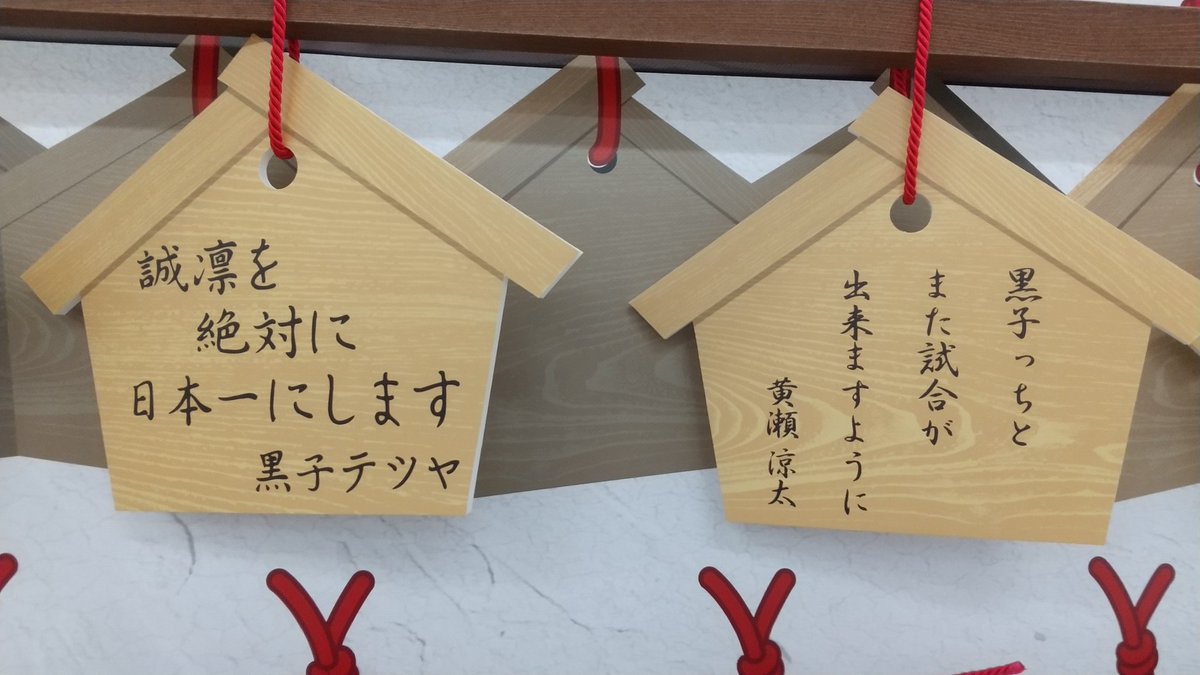 誠凛を
絶対に
日本一にします
黒子テツヤ
黒子っちと
また試合が
出来ますように
黄瀬涼太